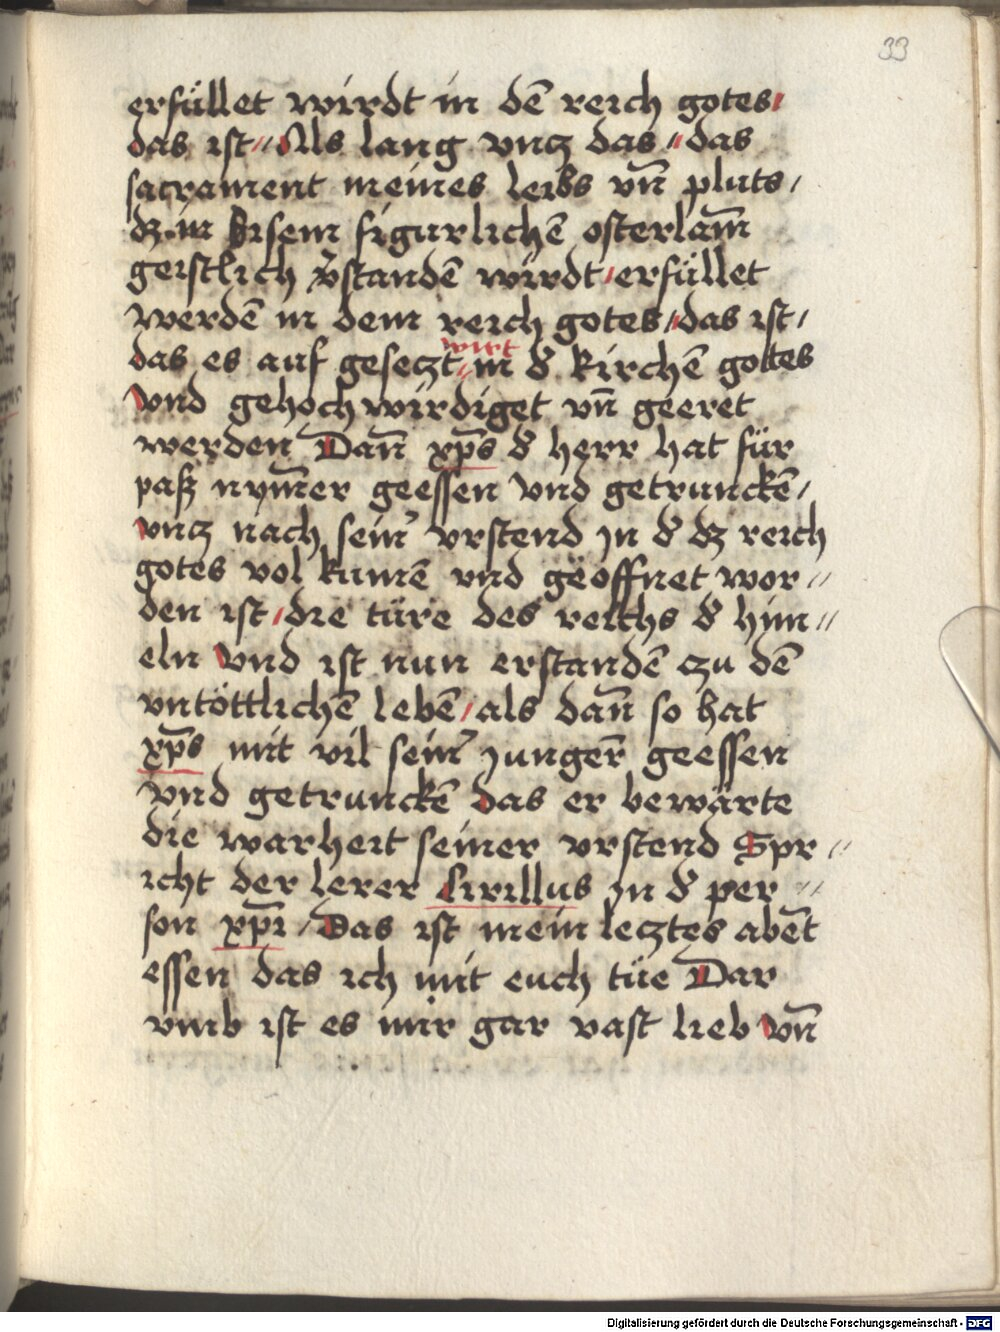 33
erfüllet wirdt in dē reich gotes /
das ist // Als lang vncz das // das
sacrament meines leibs vn̄ pluts /
dz in disem figurlichē osterlam̄
geistlich v̄standē wirdt / erfüllet
werdē in dem reich gotes / das ist /
wirt
das es auf geseczt // in d̄ kirchē gottes
vnd gehochwirdiget vn̄ geeret
werden Dan̄ xp̄s d̄ herr hat für
paß nym̄er geessen vnd getrunckē /
vncz nach sein̄ vrstend jn d̄ dz reich
gotes volkumē vnd geoffnet wor //
den ist / die türe des reichs d̄ him //
eln vnd ist nun erstandē czu dē
vntöttlichē lebē / als dan̄ so hat
xp̄s mit vil sein̄ junger̄ geessen
vnd getrunckē das er bewärte
die warheit seiner vrstend Spr //
icht der lerer Cirillus jn d̄ per //
son xp̄i / Das ist mein lecztes abēt
essen das ich mit euch tüe Dar
vmb ist es mir gar vast lieb vn̄
Digitalisierung gefördert durch die Deutsche Forschungsgemeinschaft - DFG